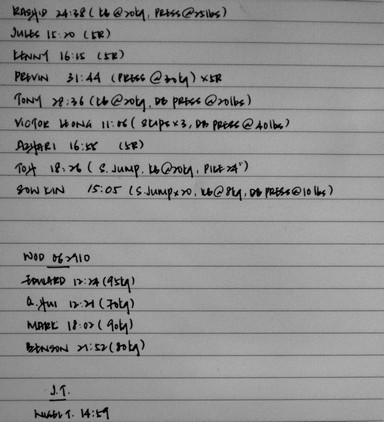 RASHID 24:38 (KB @ 20kg, PRESS @ 25lbs)
JULES 15:20 (5R)
KENNY 16:15 (5R)
PREVIN 31:44 (PRESS @ 30kg) x5R
TONY 28:36 (KB @ 20kg, DB PRESS @ 20lbs)
VICTOR LEONG 11:05 (STEPS x 3, DB PRESS @ 40lbs)
AZHARI 16:55 (5R)
TOH 18:26 (S. JUMP, KB @ 20kg, PIKE 24")
SOW KIN 15:05 (S. JUMP x 20, KB @ 8kg, DB PRESS @ 10lbs)
WOD 062910
EDWARD 12:24 (95kg)
12:21 (70kg)
MARK 18:02 (90kg)
BENSON 21:52 (80kg)
J.T.
14:59